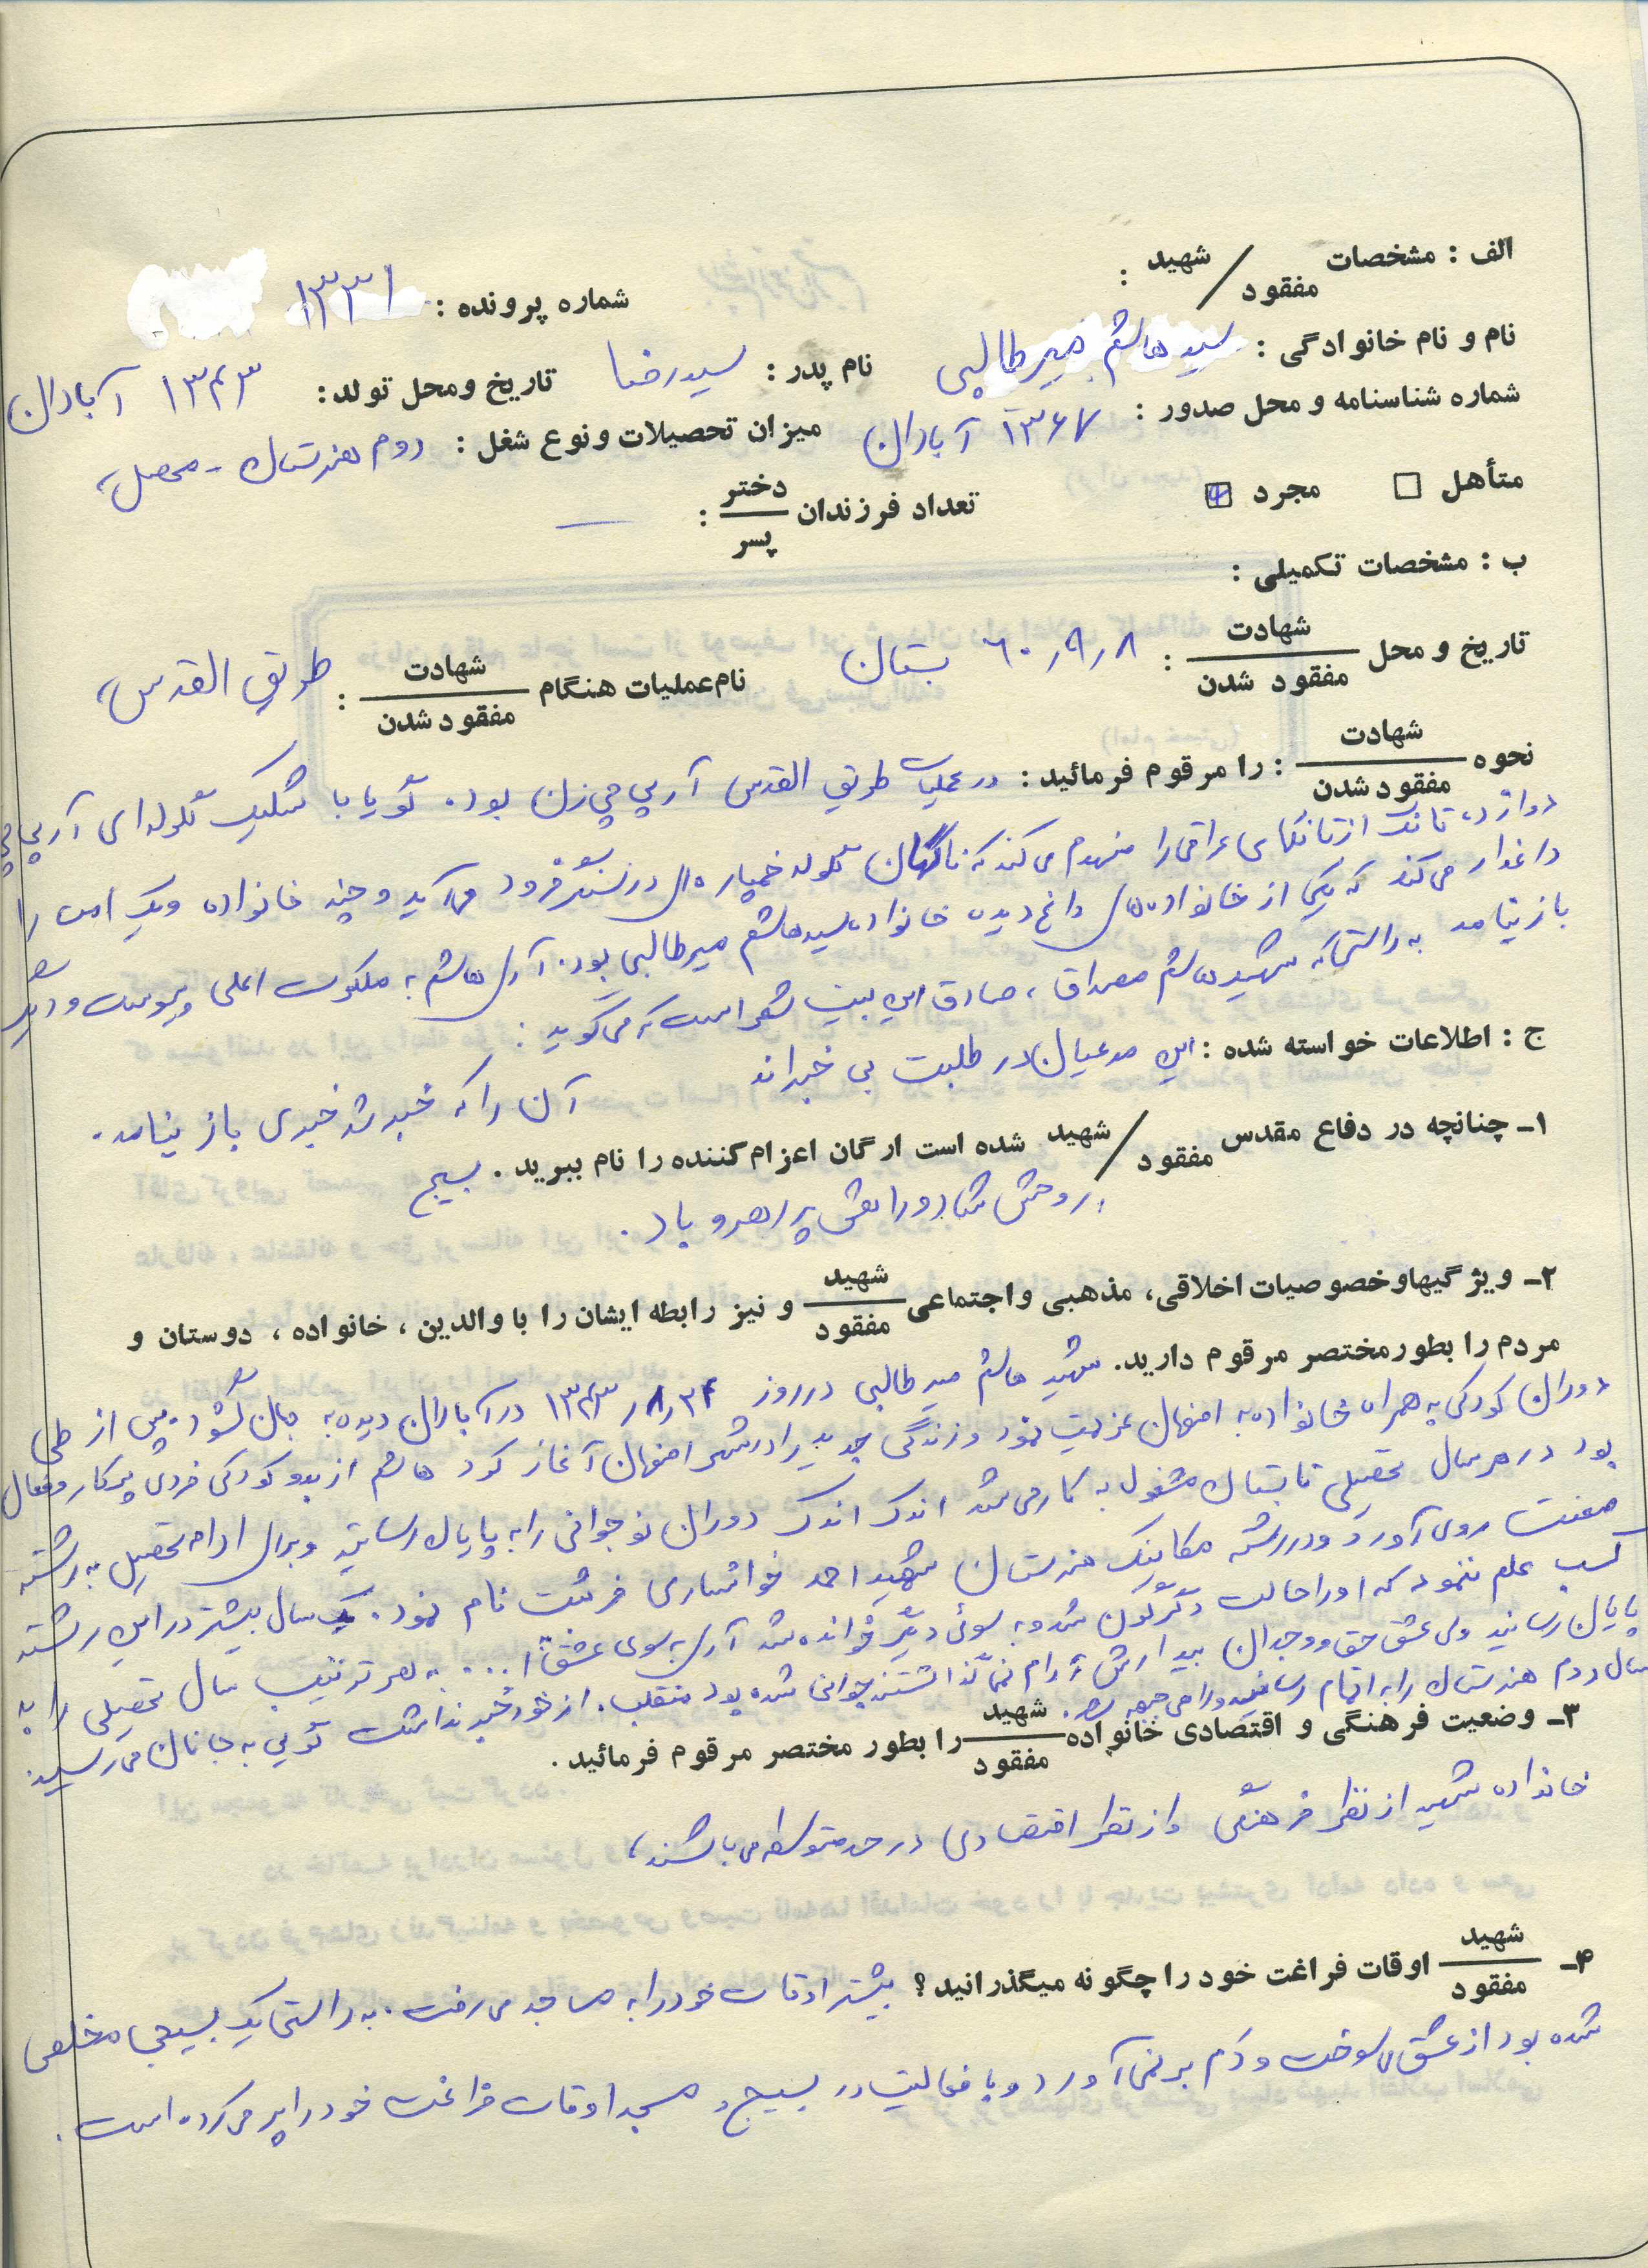 الف : مشخصات شهید / مفقود :
شماره پرونده : ۱۳۳۱
نام و نام خانوادگی : سید هاشم میرطالبی نام پدر : سیدرضا تاریخ ومحل تولد : ۱۳۴۳ آبادان
شماره شناسنامه و محل صدور : ۱۳۶۷ آبادان میزان تحصیلات ونوع شغل : دوم هنرستان - محصل
متأهل □ مجرد ☑ تعداد فرزندان دختر / پسر : —
ب : مشخصات تکمیلی :
تاریخ و محل شهادت / مفقود شدن : ۶۰٫۹٫۸ بستان نام عملیات هنگام شهادت / مفقود شدن : طریق القدس
نحوه شهادت / مفقود شدن : را مرقوم فرمائید : در عملیات طریق القدس آرپی جی زن بود. گویا با شلیک گلوله‌ای آرپی جی
دوازده تانک از تانکهای عراقی را منهدم می‌کند که ناگهان گلوله خمپاره‌ای در سنگر فرود می‌آید و چند خانواده و یک امت را
داغدار می‌کند که یکی از خانواده‌های داغ دیده خانواده سید هاشم میرطالبی بود. آری هاشم به ملکوت اعلی پیوست و دیگر
باز نیامد به راستی که شهید هاشم مصداق، صادق این بیت شعر است که می‌گوید :
ج : اطلاعات خواسته شده : این مدعیان در طلبت بی خبراند
آن را که خبر شد خبری باز نیامد.
۱ـ چنانچه در دفاع مقدس شهید / مفقود شده است ارگان اعزام‌کننده را نام ببرید . بسیج
روحش شاد و راهش پر رهرو باد.
۲ـ ویژگیها وخصوصیات اخلاقی، مذهبی واجتماعی شهید / مفقود و نیز رابطه ایشان را با والدین ، خانواده ، دوستان و
مردم را بطورمختصر مرقوم دارید. شهید هاشم میرطالبی در روز ۱۳۴۳ در آبادان دیده به جهان گشود. پس از طی
دوران کودکی به همراه خانواده به اصفهان عزیمت نمود و زندگی جدید را در شهر اصفهان آغاز کرد هاشم از بدو کودکی فردی پرکار و فعال
بود در هر سال تحصیلی تابستان مشغول به کار می‌شد اندک اندک دوران نوجوانی را به پایان رسانید و برای ادامه تحصیل به رشته
صنعت روی آورد و در رشته مکانیک هنرستان شهید احمد خوانساری ثبت نام نمود. یک سال بیشتر در این رشته
کسب علم ننمود که او را حالت دگرگون شد و به سوئی دیگر خوانده شد آری به سوی عشق ... به هر ترتیب سال تحصیلی را به
پایان رسانید ولی عشق حق و وجدان بیدارش آرام نمی‌گذاشتند جوانی شده بود منقلب. از خود خبر نداشت گویی به جانان می‌رسید.
سال دوم هنرستان را به اتمام رسانید و راهی جبهه شد.
۳ـ وضعیت فرهنگی و اقتصادی خانواده شهید / مفقود را بطور مختصر مرقوم فرمائید .
خانواده شهید از نظر فرهنگی و از نظر اقتصادی در حد متوسط می‌باشند
۴ـ شهید / مفقود اوقات فراغت خود را چگونه میگذرانید ؟ بیشتر اوقات خود را به مساجد می‌رفت. به راستی یک بسیجی مخلص
شده بود از عشق می‌سوخت و دم بر نمی‌آورد و با فعالیت در بسیج و مسجد اوقات فراغت خود را پر می‌کرده است.